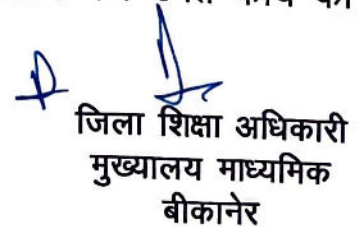 जिला शिक्षा अधिकारी
मुख्यालय माध्यमिक
बीकानेर